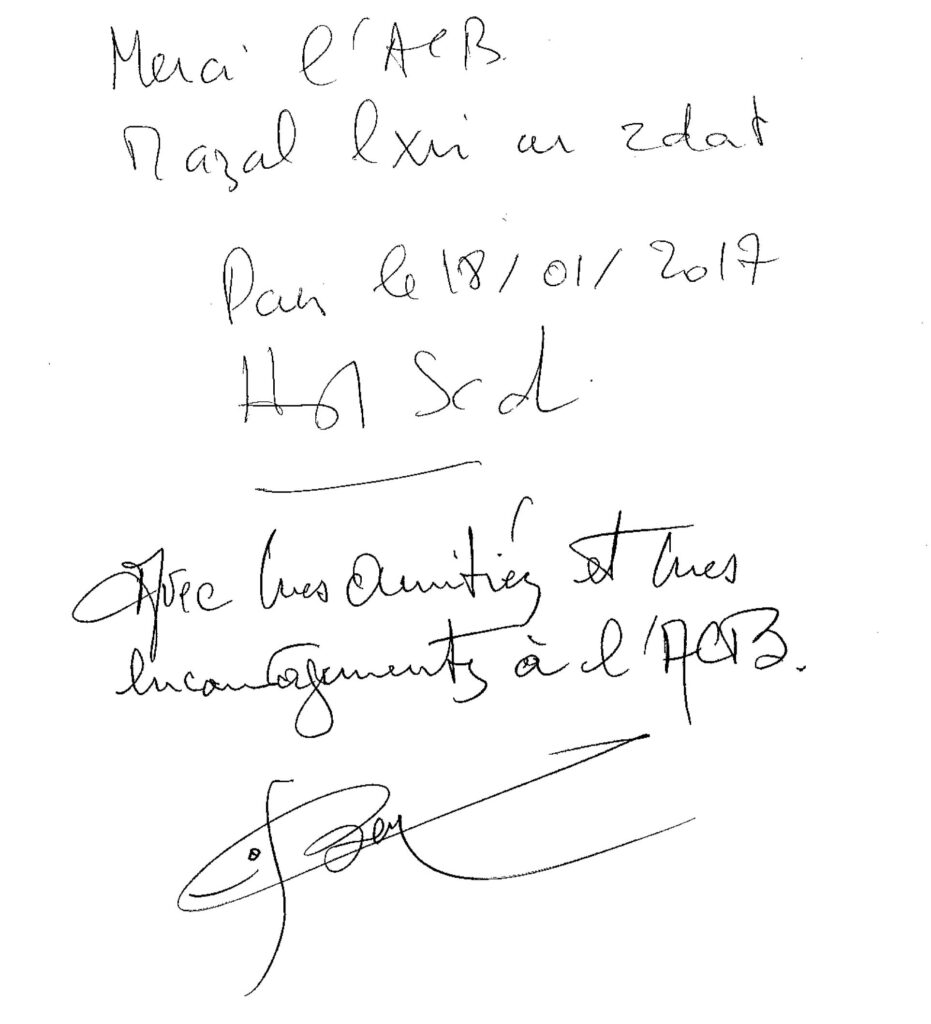 Merci l'ACB
Mazal lxir ar zdat
Paris le 18/01/2017
Avec mes amitiés et mes
encouragements à l'ACB.